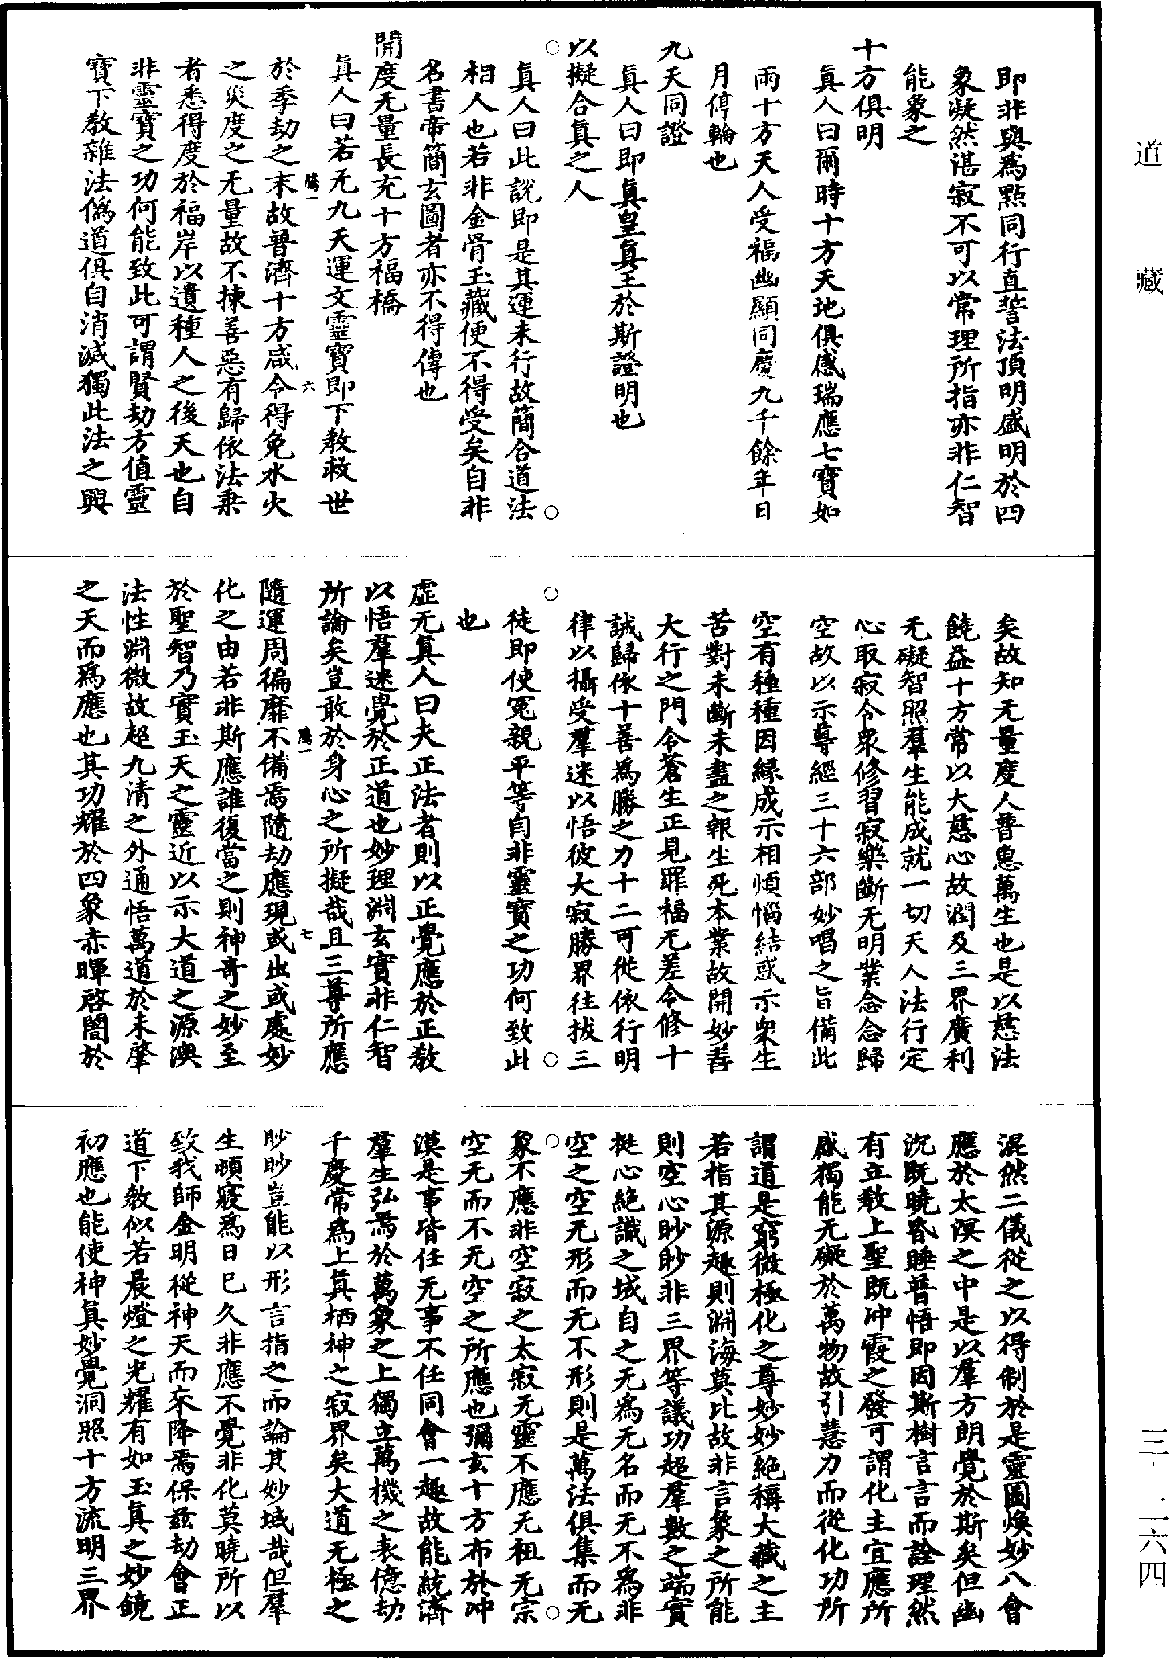 道藏
三·二六四
即非與爲點同行直誓法頂明盛明於四
象凝然湛寂不可以常理所指亦非仁智
能象之
十方俱明
真人曰爾時十方天地俱感瑞應七寶如
雨十方天人受福幽顯同慶九千餘年日
月停輪也
九天同證
真人曰即真皇真王於斯證明也
以擬合真之人
真人曰此説即是其運未行故簡合道法
相人也若非金骨玉藏便不得受矣自非
名書帝簡玄圖者亦不得傳也
開度无量長充十方福橋
真人曰若无九天運文靈寶即下教救世
於季劫之末故普濟十方咸令得免水火
之災度之无量故不揀善惡有歸依法乗
者悉得度於福岸以遺種人之後天也自
非靈寶之功何能致此可謂賢劫方值靈
寶下教雜法僞道俱自消滅獨此法之興
矣故知无量度人普惠萬生也是以慈法
饒益十方常以大慈心故潤及三界廣利
无礙智照羣生能成就一切天人法行定
心取寂令衆修習寂樂斷无明業念念歸
空故以示尊經三十六部妙唱之旨備此
空有種種因緣成示相煩惱結惑示衆生
苦對未斷未盡之報生死本業故開妙善
大行之門令蒼生正見罪福无差令修十
誡歸依十善爲勝之力十二可從依行明
律以攝受羣迷以悟彼大寂勝界往拔三
徒即使冤親平等自非靈寶之功何致此
也
虛无真人曰夫正法者則以正覺應於正教
以悟羣迷覺於正道也妙理淵玄實非仁智
所論矣豈敢於身心之所擬哉且三尊所應
隨運周徧靡不備焉隨劫應現或出或處妙
化之由若非斯應誰復當之則神奇之妙至
於聖智乃實玉天之靈近以示大道之源澳
法性淵微故超九清之外通悟萬道於未肇
之天而爲應也其功耀於四象亦暉啓闇於
混然二儀從之以得制於是靈圖煥妙八會
應於太溟之中是以羣方朗覺於斯矣但幽
沉既曉昏睡普悟即因斯樹言言而詮理然
有立教上聖既沖霞之發可謂化主宜應所
感獨能无礙於萬物故引慧力而從化功所
謂道是窮微極化之尊妙妙絶稱大藏之主
若指其源趣則淵海莫比故非言象之所能
則空心眇眇非三界等議功超羣數之端實
挺心絶識之域自之无爲无名而无不爲非
空之空无形而无不形則是萬法俱集而无
象不應非空寂之太寂无靈不應无祖无宗
空无而不无空之所應也彌玄十方布於沖
漠是事皆任无事不任同會一趣故能統濟
羣生弘焉於萬象之上獨立萬機之表億劫
千慶常爲上真栖神之寂界矣大道无極之
眇眇豈能以形言指之而論其妙域哉但羣
生頓寢爲日已久非應不覺非化莫曉所以
致我師金明從神天而來降焉保玆劫會正
道下教似若晨燈之光耀有如玉真之妙鏡
初應也能使神真妙覺洞照十方流明三界